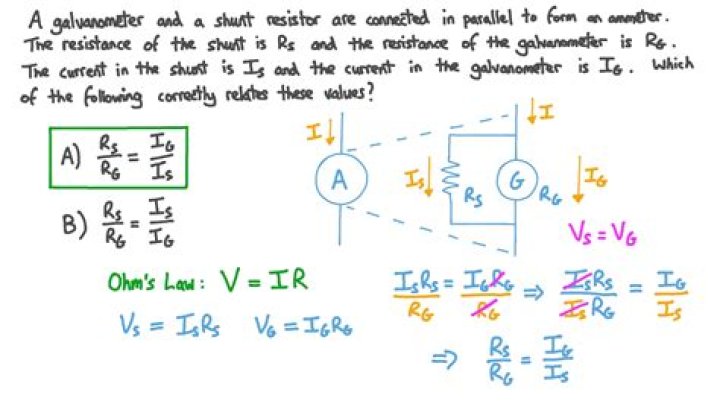 A galvanometer and a shunt resistor are connected in parallel to form an ammeter.
The resistance of the shunt is Rs and the resistance of the galvanometer is RG.
The current in the shunt is Is and the current in the galvanometer is IG. Which
of the following correctly relates these values?
A) Rs/RG = IG/Is
B) Rs/RG = Is/IG
I
A
I
Is
Rs
G
RG
IG
Vs = VG
Ohm's Law: V = IR
Vs = IsRs VG = IGRG
IsRs/RG = IGRG/RG ⇒ IsRs/IsRG = IG/Is
⇒ Rs/RG = IG/Is